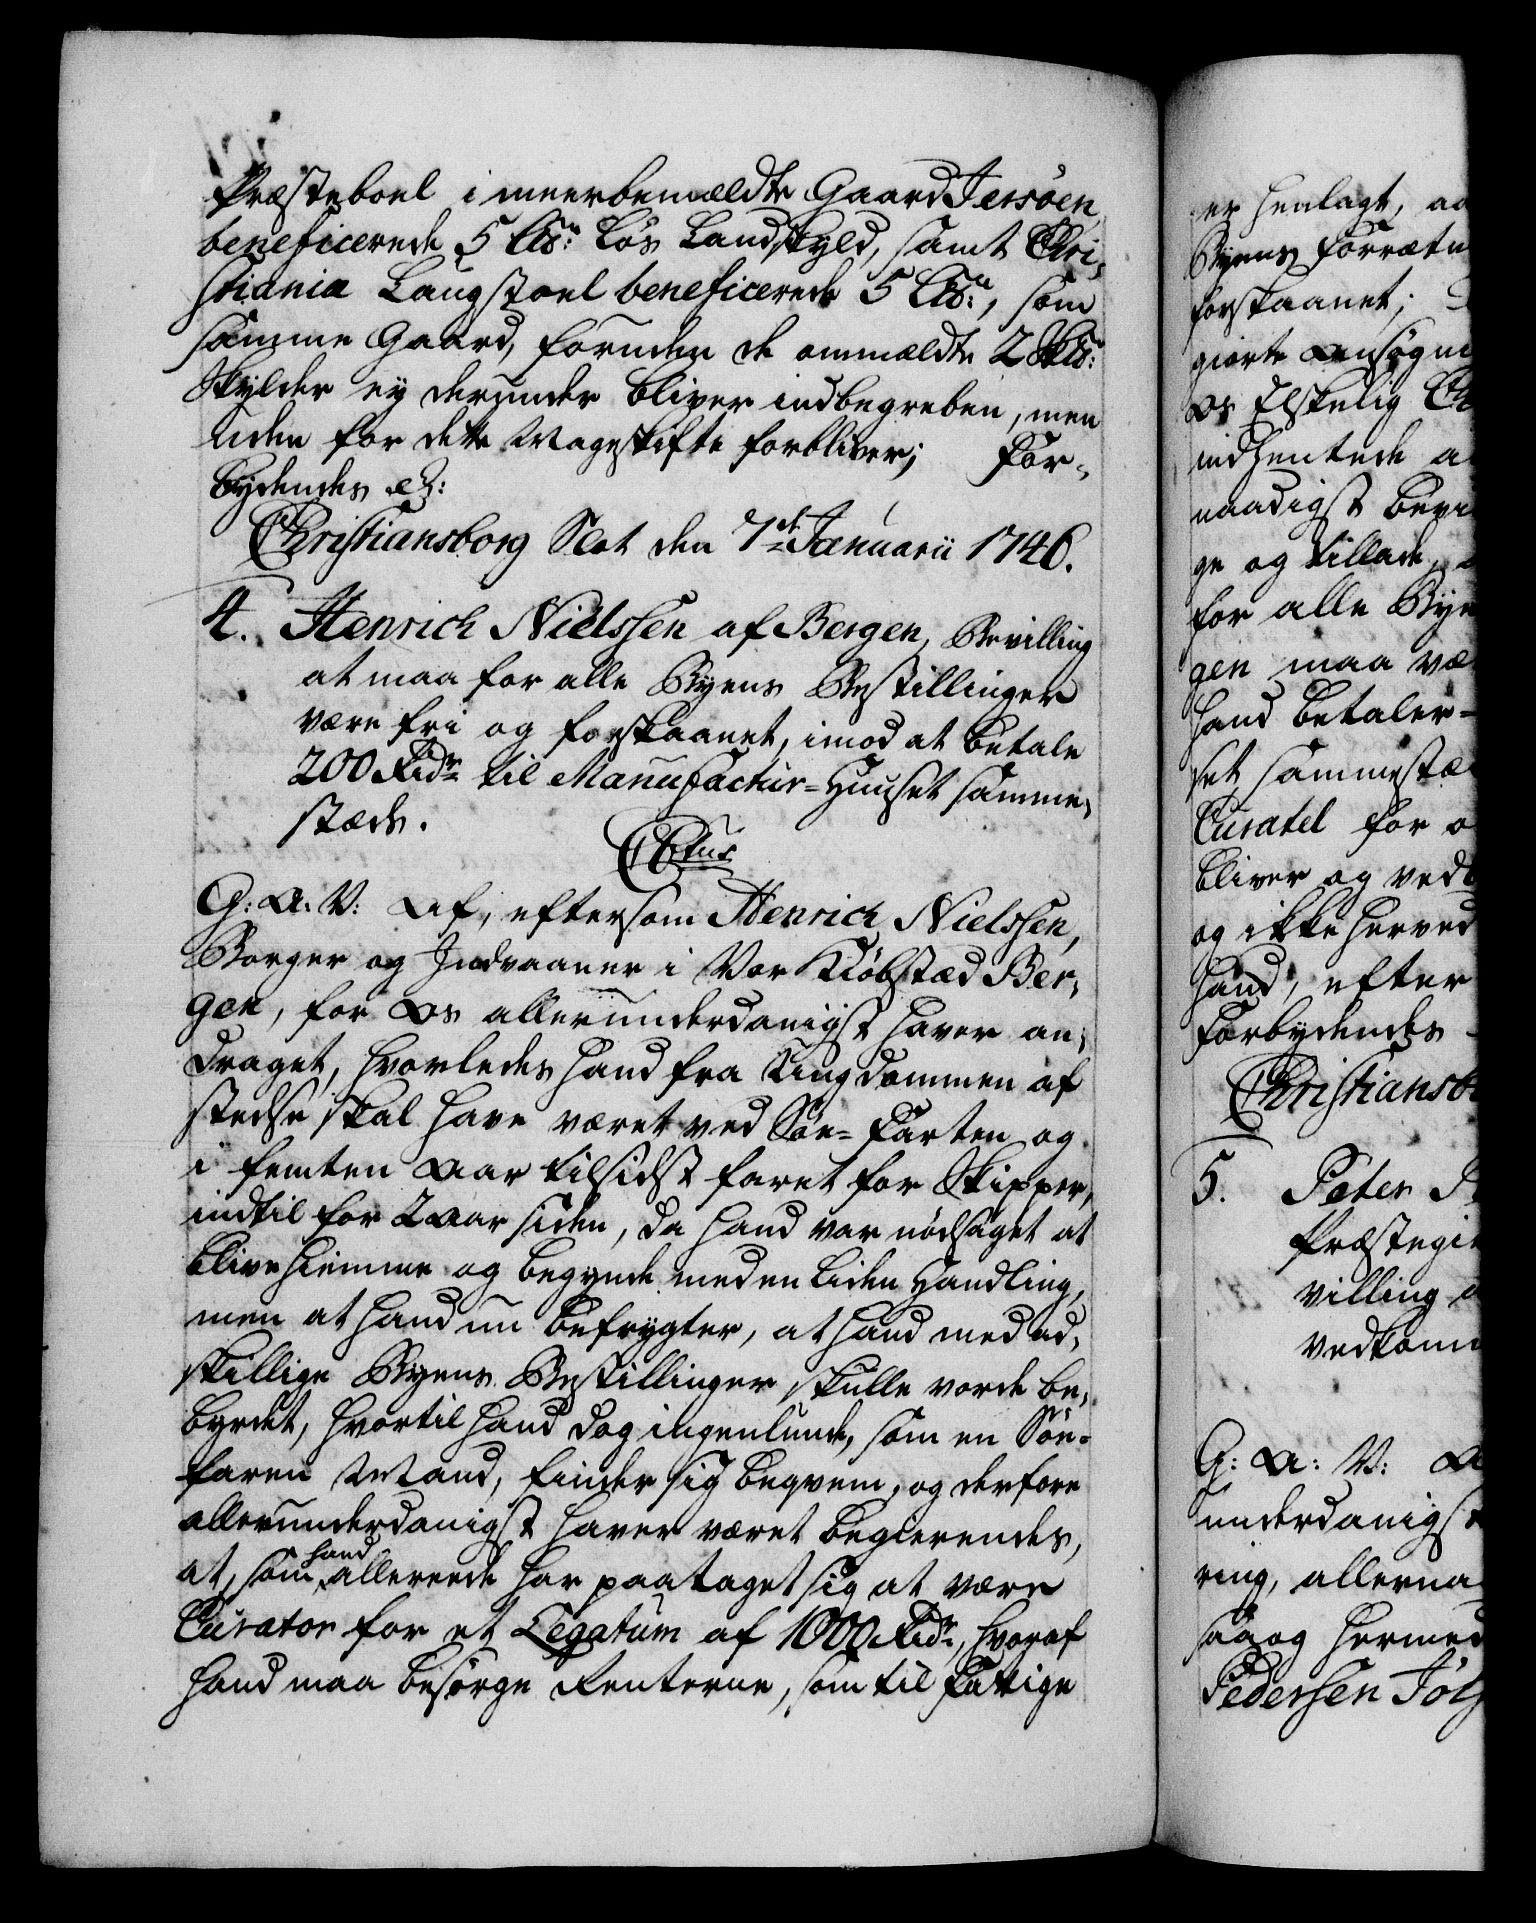 Præsteboel i meerbemældte Gaard Jersöen
beneficerede 5 Lis: Løs Landskyld, samt Chri-
stiania Laugstoel beneficerede 5 Lis:, som
samme Gaard, foruden de ommældte 2
Skylder ey derunder bliver indbegreben, men
uden for dette Mageskifte forbliver; For-
bydendes etc:
Christiansborg Slot den 7de Januarii 1746.
4. Henrich Nielssen af Bergen, Bevilling
at maa for alle Byens Bestillinger
være fri og forskaanet, imod at betale
200 Rdr til Manufactur-Huuset samme-
stæds.
C 6tus
G: A: V: At, eftersom Henrich Nielssen,
Borger og Indvaaner i Vor Kiøbstæd Ber-
gen, for Os allerunderdanigst haver an-
draget, hvorledes hand fra Ungdommen af
stedse skal have været ved Søe-Farten og
i femten Aar tilsidst faret for Skipper,
indtil for 2 Aar siden, da hand var nødsaget at
blive hiemme og begynde med en liden Handling,
men at hand nu befrygter, at hand med ad-
skillige Byens Bestillinger skulle vorde be-
byrdet, hvortil hand dog ingenlunde, som en Søe-
faren Mand, finder sig beqvem, og derfore
allerunderdanigst haver været begierendes,
at, som hand allereede har paataget sig at være
Curator for et Legatum af 1000 Rdr, hvoraf
hand maa besørge Renterne, som til Fattige
er henlagt, aa
Byens Forretn
forskaanet;
giorte Ansøgni
Os Elskelig Ch
indhentede
naadigst bevi
ge og tillade,
for alle Bye
gen maa væ
hand betaler
set sammestæ
Curatel for
bliver og ved
og ikke herved
hand, efter
Forbydendes
Christiansb
5. Peter
Præstegie
villing
vedkom
G: A: V: A
underdanigst
ring, allerna
saa og hermed
Pedersen